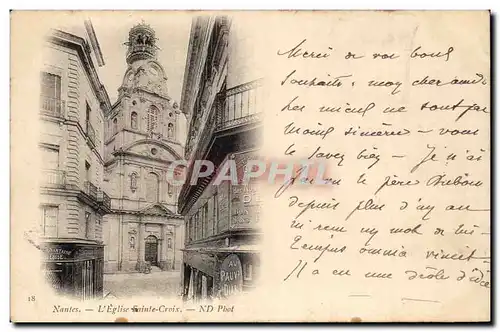 Merci de vos bons
souhaits, moy cher ami
les miens ne sont pas
moins sincères – vous
le savez bien – Je n'ai
pas vu le père
depuis plus d'un an
ni reçu un mot de lui
tempus omnia vincit –
il a eu une drôle d'idée
18
Nantes. – L'Église Sainte-Croix. – ND Phot
CARTHE-POSTALE
PAUV